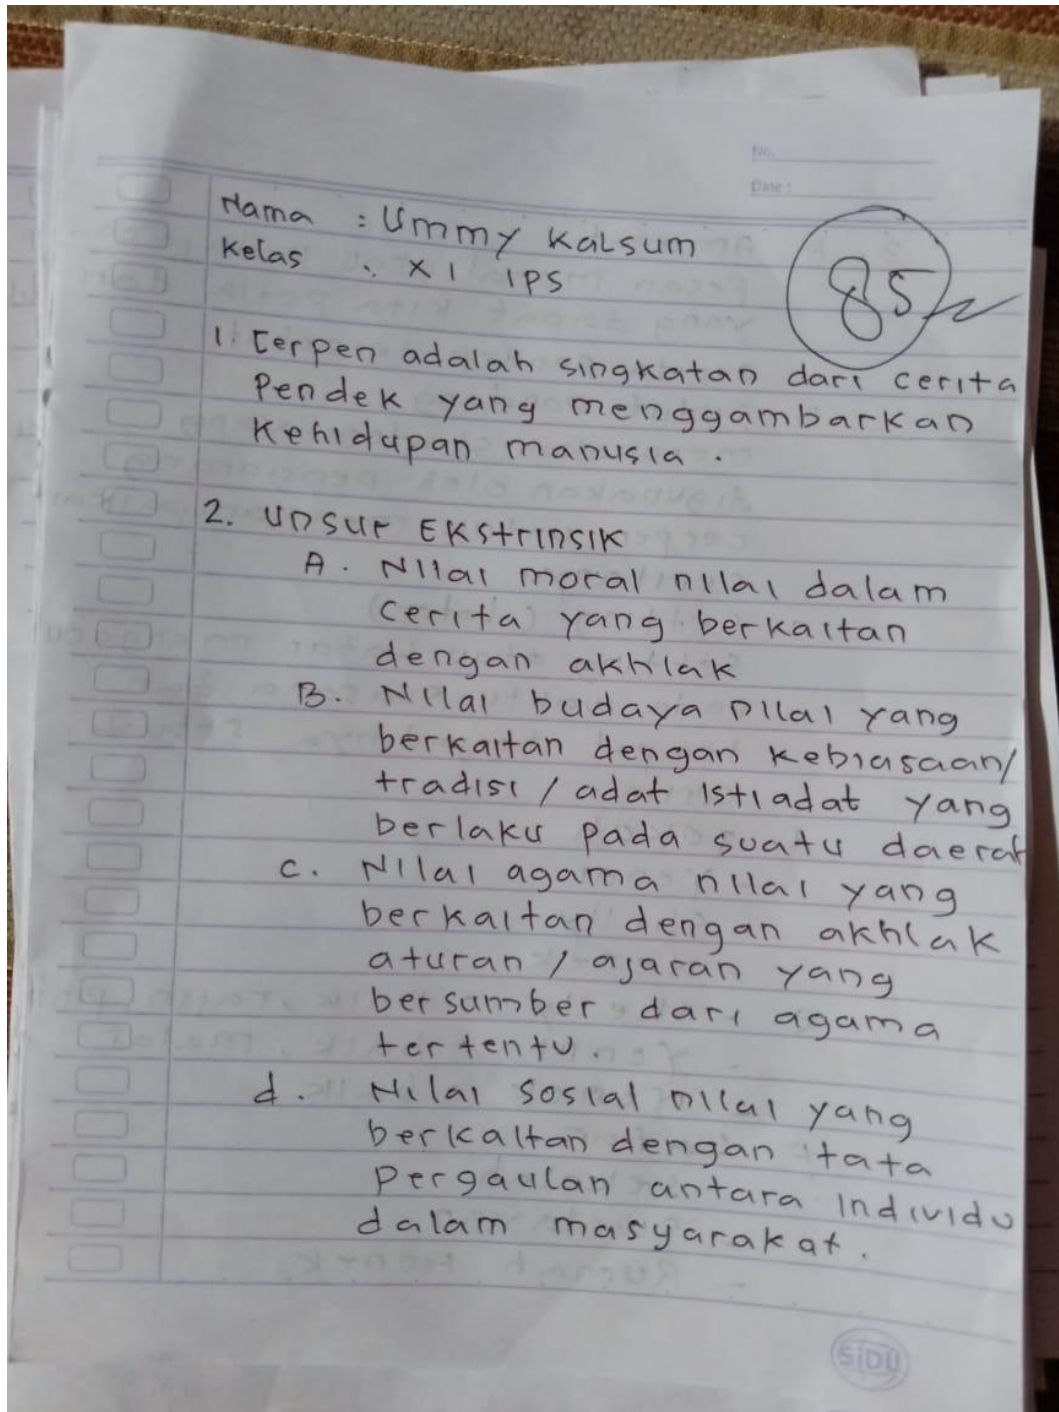 No.
Date :
Nama : Ummy Kalsum
Kelas : XI IPS
85
1. Cerpen adalah singkatan dari cerita
Pendek yang menggambarkan
Kehidupan manusia.
2. Unsur Ekstrinsik
A. Nilai moral nilai dalam
cerita yang berkaitan
dengan akhlak
B. Nilai budaya nilai yang
berkaitan dengan kebiasaan/
tradisi / adat istiadat yang
berlaku pada suatu daerah
c. Nilai agama nilai yang
berkaitan dengan akhlak
aturan / ajaran yang
bersumber dari agama
tertentu.
d. Nilai sosial nilai yang
berkaitan dengan tata
Pergaulan antara individu
dalam masyarakat.
SiDU